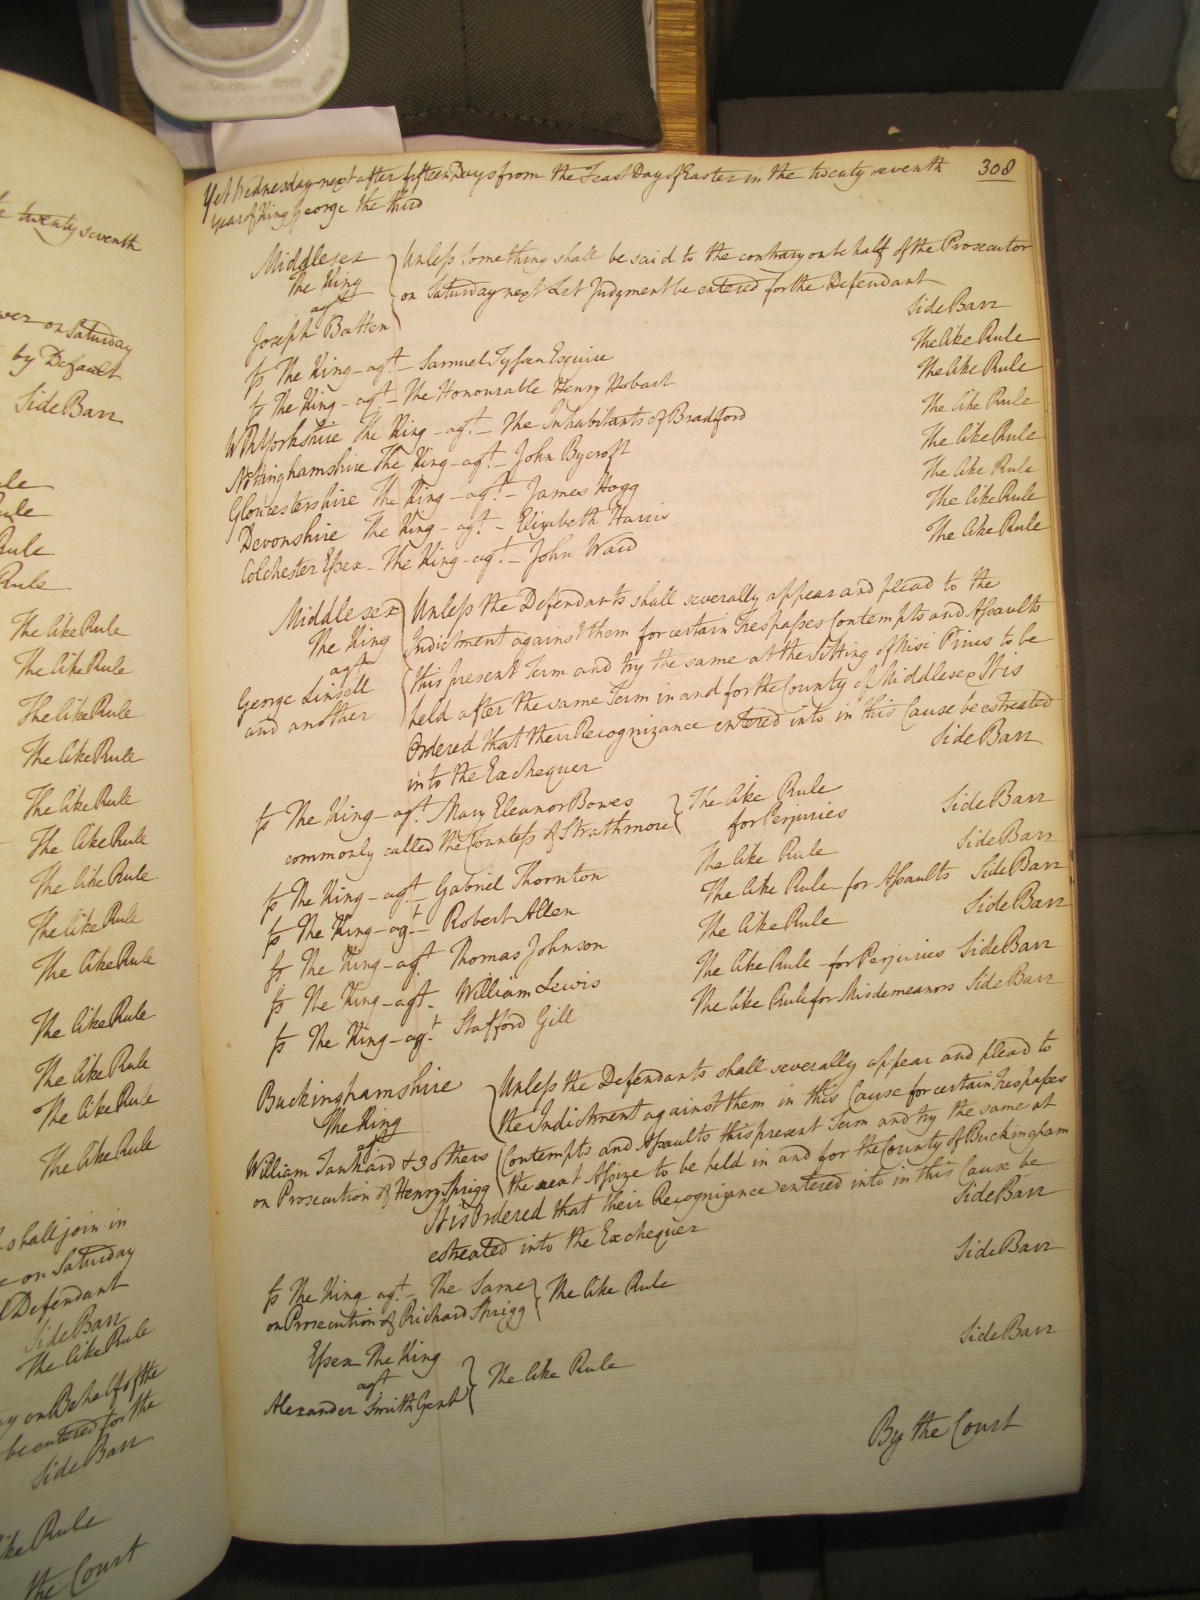 e twenty seventh
wer on Saturday
by Default
Side Barr
ule
Rule
Rule
Rule
The like Rule
The like Rule
The like Rule
The like Rule
The like Rule
The like Rule
The like Rule
The like Rule
The like Rule
The like Rule
The like Rule
The like Rule
The like Rule
shall join in
e on Saturday
Defendant
Side Barr
The like Rule
ay on Behalf of the
be entered for the
Side Barr
like Rule
the Court
308
Yet Wednesday next after fifteen Days from the Feast Day of Easter in the twenty seventh
year of King George the third
Middlesex
The King
agt
Joseph Batten
Unless something shall be said to the contrary on behalf of the Prosecutor
on Saturday next Let Judgment be entered for the Defendant
Side Barr
fs The King - agt. - Samuel Tyssen Esquire The like Rule
fs The King - agt. - The Honourable Henry Hobart The like Rule
WR Yorkshire The King - agt. - The Inhabitants of Bradford The like Rule
Nottinghamshire The King - agt. - John Bycroft The like Rule
Gloucestershire The King - agt. - James Hogg The like Rule
Devonshire The King - agt. - Elizabeth Harris The like Rule
Colchester Essex - The King - agt. - John Ward The like Rule
Middlesex
The King
agt
George Linsell
and another
Unless the Defendants shall severally appear and plead to the
Indictment against them for certain Trespasses Contempts and Assaults
this present Term and try the same at the Sitting of Nisi Prius to be
held after the same Term in and for the County of Middlesex It is
Ordered that their Recognizance entered into in this Cause be estreated
into the Exchequer Side Barr
fs The King - agt. Mary Eleanor Bowes The like Rule
commonly called the Countess of Strathmore for Perjuries Side Barr
fs The King - agt. Gabriel Thornton The like Rule Side Barr
fs The King - agt. Robert Allen The like Rule - for Assaults Side Barr
fs The King - agt. Thomas Johnson The like Rule Side Barr
fs The King - agt. William Lewis The like Rule - for Perjuries Side Barr
fs The King - agt. Stafford Gill The like Rule for Misdemeanors Side Barr
Buckinghamshire
The King
agt
William Tankard & 3 others
on Prosecution of Henry Sprigg
Unless the Defendants shall severally appear and plead to
the Indictment against them in this Cause for certain Trespasses
Contempts and Assaults this present Term and try the same at
the next Assize to be held in and for the County of Buckingham
It is Ordered that their Recognizance entered into in this Cause be
estreated into the Exchequer Side Barr
fs The King agt. - The Same The like Rule Side Barr
on Prosecution of Richard Sprigg
Essex The King
agt
Alexander Smith Gent
The like Rule Side Barr
By the Court